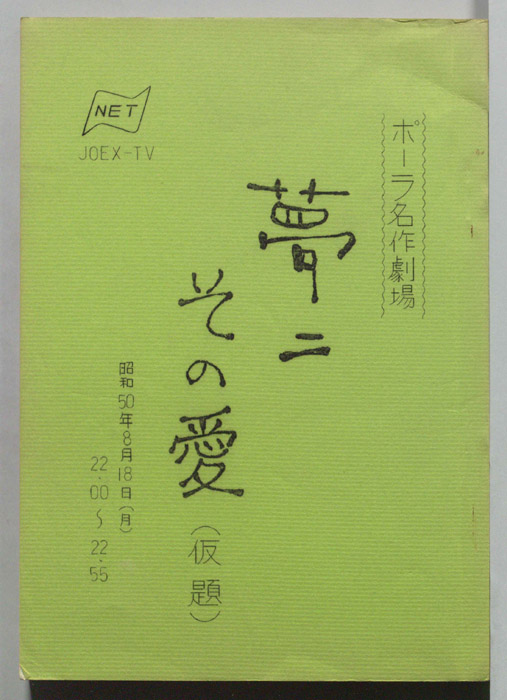 ポーラ名作劇場
夢二
その愛（仮題）
昭和50年8月18日（月）
22.00～22.55
NET
JOEX-TV